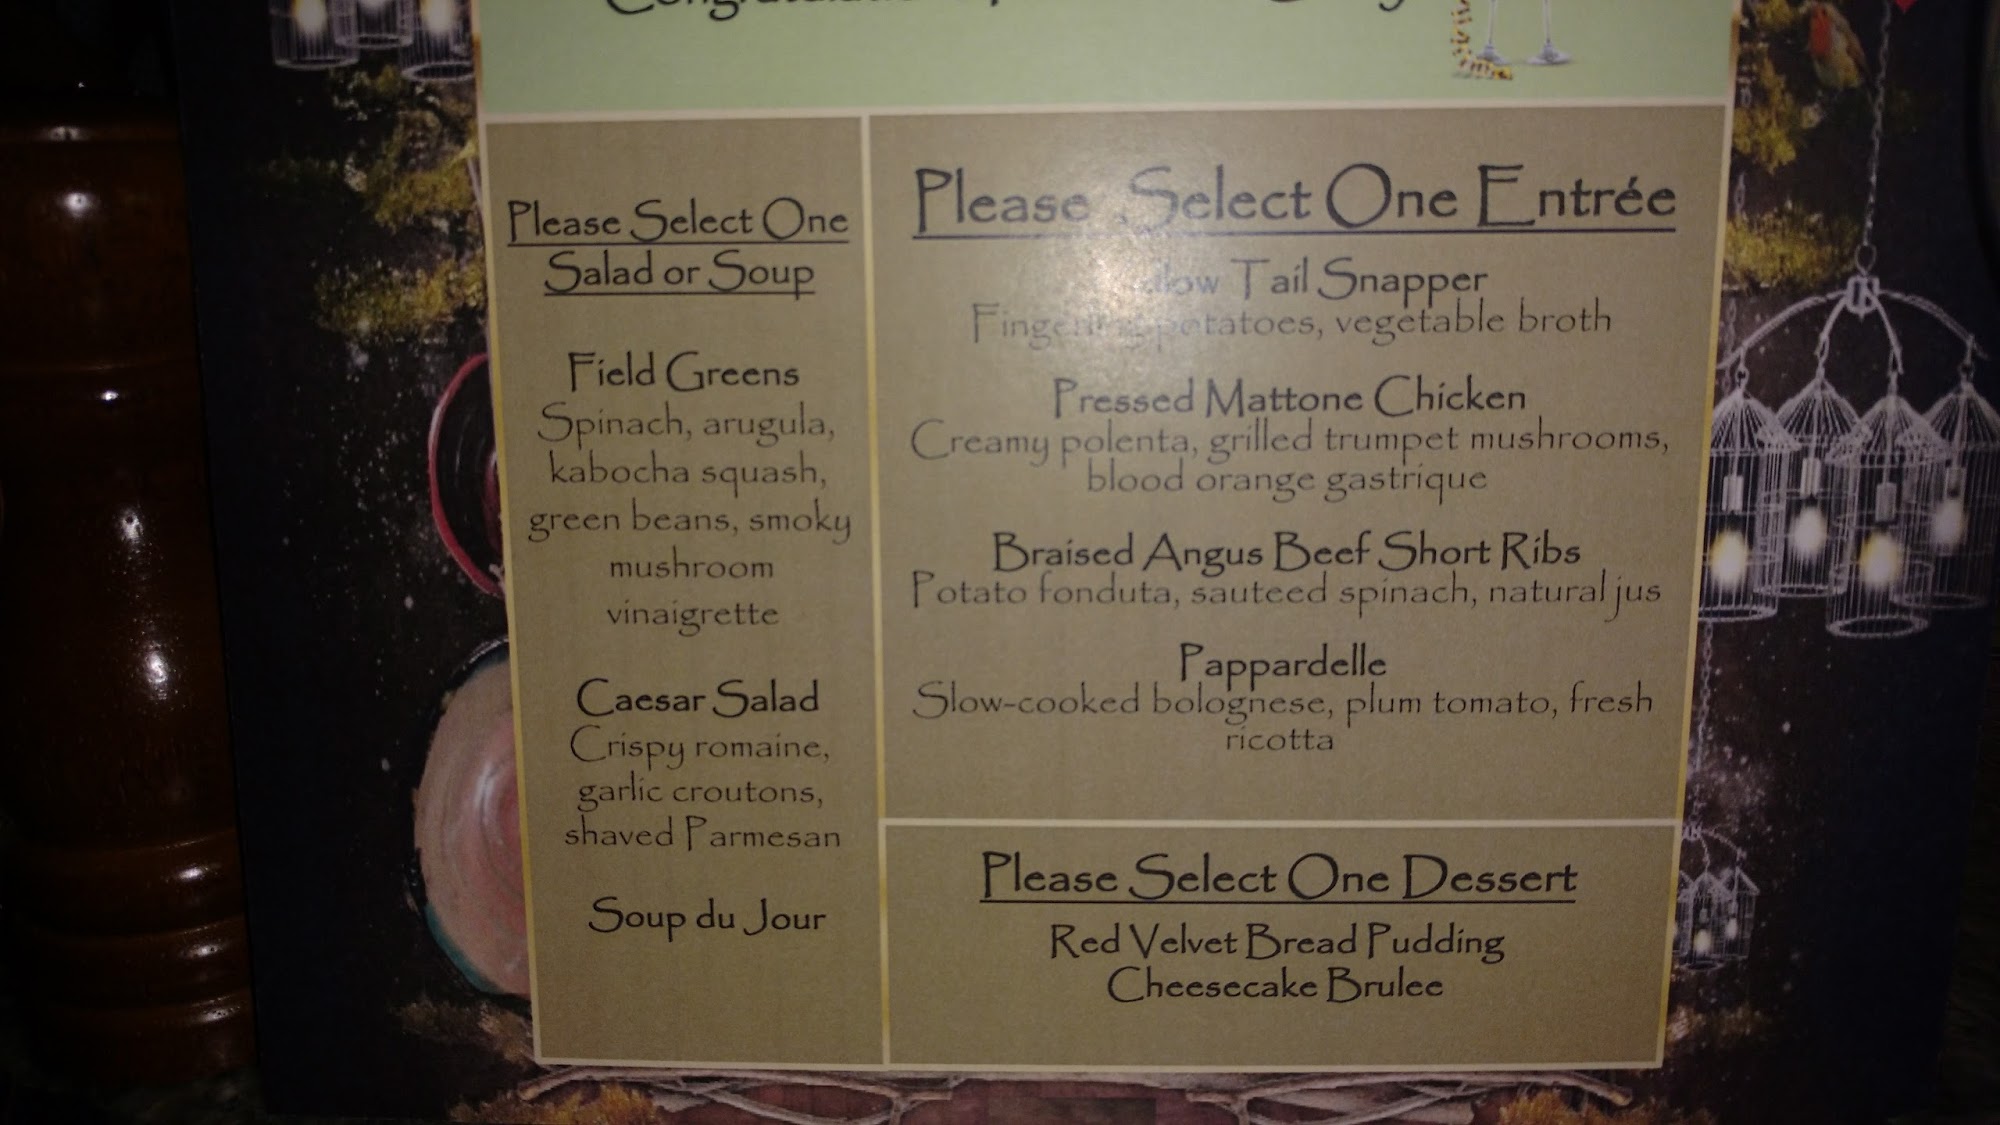 Please Select One
Salad or Soup
Field Greens
Spinach, arugula,
kabocha squash,
green beans, smoky
mushroom
vinaigrette
Caesar Salad
Crispy romaine,
garlic croutons,
shaved Parmesan
Soup du Jour
Please Select One Entrée
Tail Snapper
Fingerling potatoes, vegetable broth
Pressed Mattone Chicken
Creamy polenta, grilled trumpet mushrooms,
blood orange gastrique
Braised Angus Beef Short Ribs
Potato fonduta, sauteed spinach, natural jus
Pappardelle
Slow-cooked bolognese, plum tomato, fresh
ricotta
Please Select One Dessert
Red Velvet Bread Pudding
Cheesecake Brulee